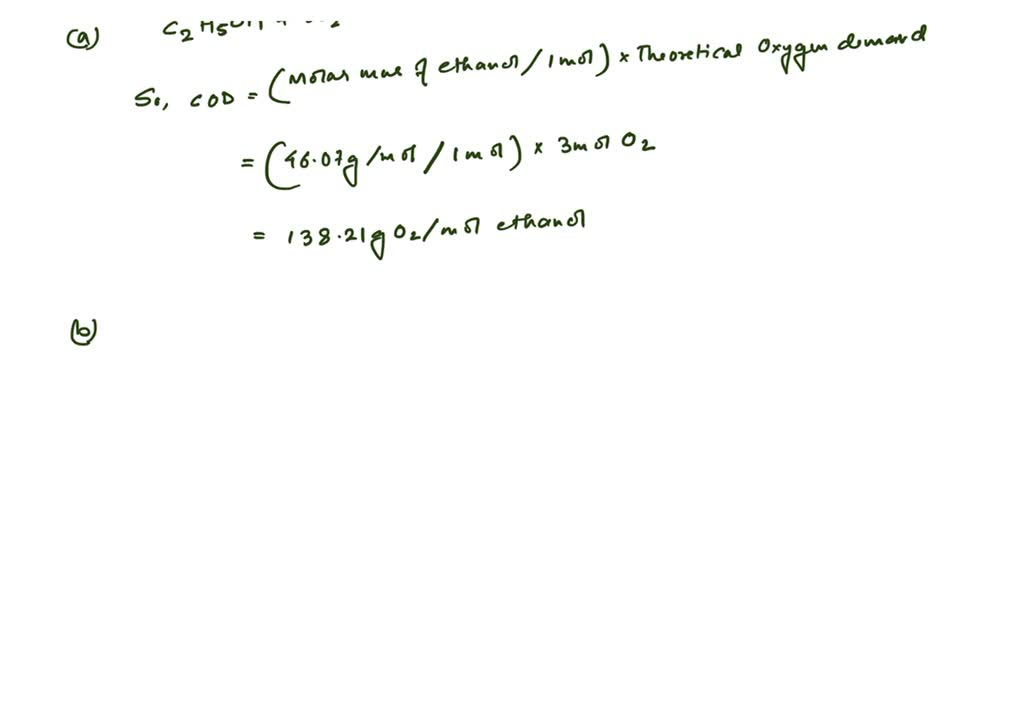 (a) C2H5OH +
So, COD = (Molar mas of ethanol / 1 mol) × Theoretical Oxygen demand
= (46.07g/mol / 1 mol) × 3 mol O2
= 138.21g O2/mol ethanol
(b)